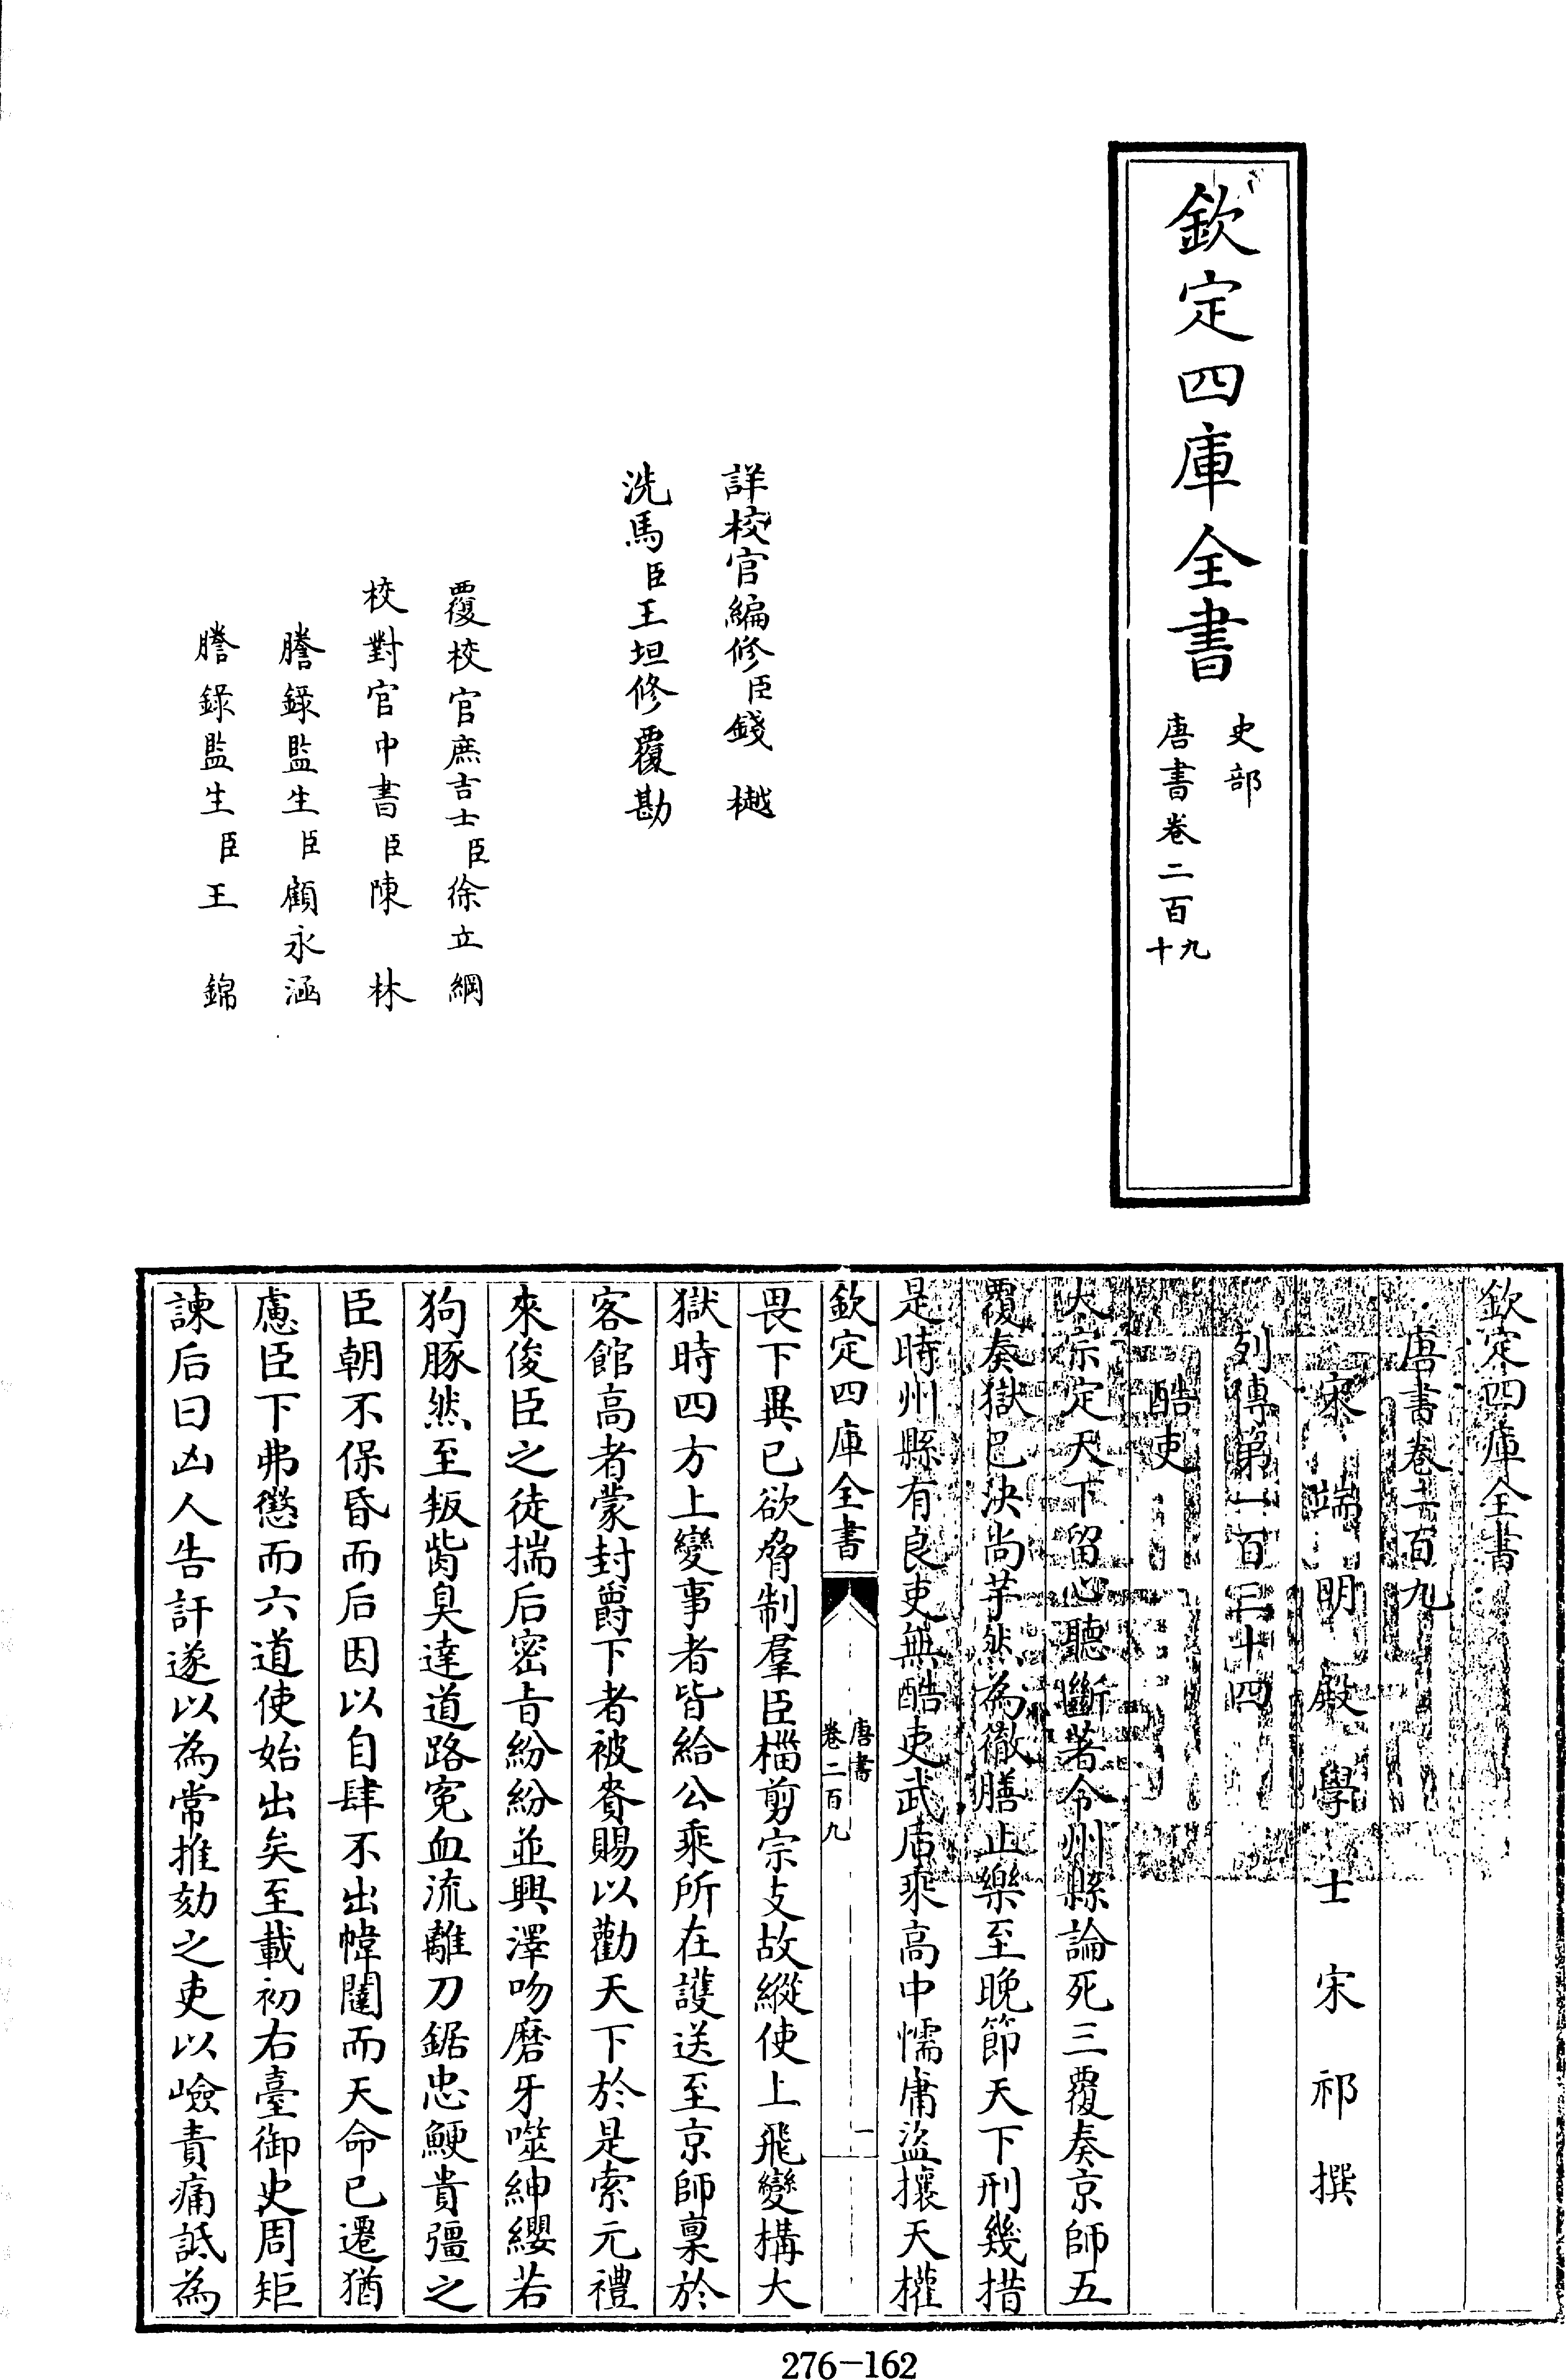 欽定四庫全書
史部
唐書卷二百九十
詳校官編修臣錢樾
洗馬臣王坦修覆勘
覆校官庶吉士臣徐立綱
校對官中書臣陳林
謄錄監生臣顧永涵
謄錄監生臣王錦
欽定四庫全書
唐書卷二百九
宋端明殿學士宋祁撰
列傳第一百三十四
酷吏
太宗定天下留心聽斷著令州縣論死三覆奏京師五
覆奏獄已決尚芋然為徹膳止樂至晚節天下刑幾措
是時州縣有良吏無酷吏武后乘高中懦庸盜攘天權
欽定四庫全書
唐書
卷二百九
一
畏下異已欲脅制羣臣櫤剪宗支故縱使上飛變構大
獄時四方上變事者皆給公乘所在護送至京師稟於
客館高者蒙封爵下者被賚賜以勸天下於是索元禮
來俊臣之徒揣后密旨紛紛並興澤吻磨牙噬紳纓若
狗豚然至叛臠臭達道路冤血流離刀鋸忠鯁貴彊之
臣朝不保昏而后因以自肆不出幃闥而天命已遷猶
慮臣下弗懲而六道使始出矣至載初右臺御史周矩
諫后曰凶人告訐遂以為常推劾之吏以嶮責痛詆為
276-162